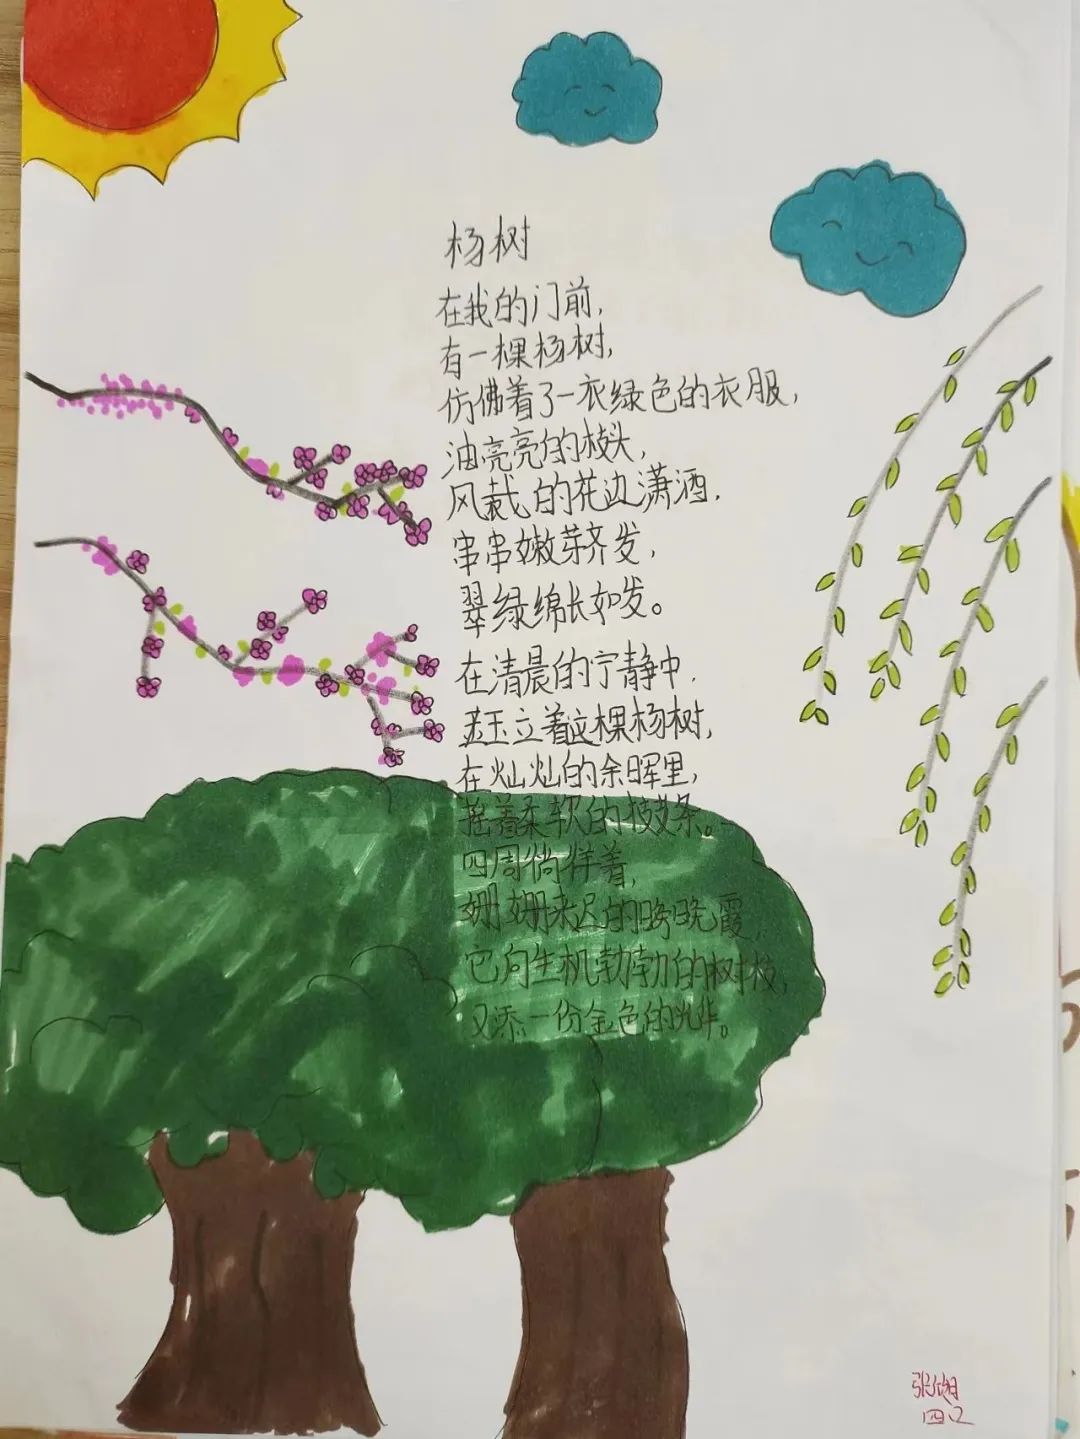 杨树
在我的门前,
有一棵杨树,
仿佛着了一衣绿色的衣服,
油亮亮的枝头,
风裁的花边潇洒,
串串嫩芽齐发,
翠绿绵长如发。
在清晨的宁静中,
玉立着这棵杨树,
在灿灿的余晖里,
摇着柔软的枝条。
四周徜徉着,
姗姗来迟的晚霞,
它向生机勃勃的树枝,
又添一份金色的光华。
张
四